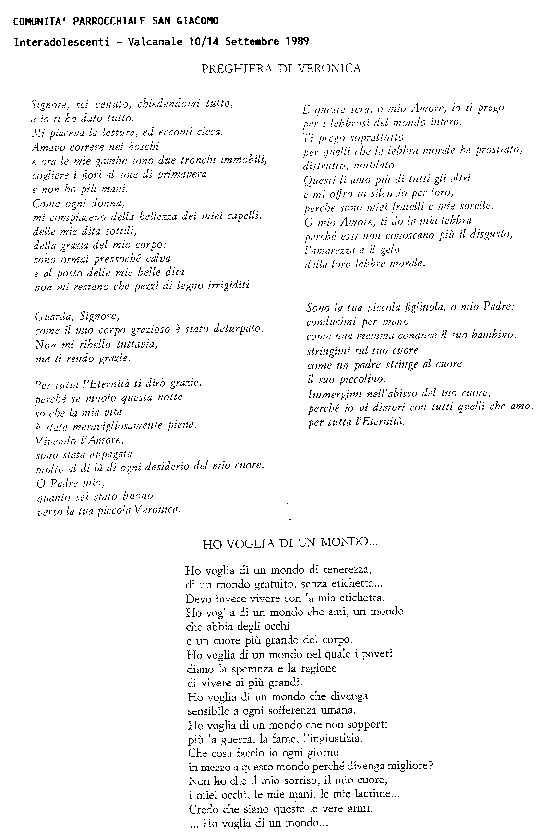 COMUNITA' PARROCCHIALE SAN GIACOMO
Interadolescenti - Valcanale 10/14 Settembre 1989
PREGHIERA DI VERONICA
Signore, sei venuto, chiedendomi tutto,
e io ti ho dato tutto.
Mi piaceva la lettura, ed eccomi cieca.
Amavo correre nei boschi
e ora le mie gambe sono due tronchi immobili,
cogliere i fiori al sole di primavera
e non ho più mani.
Come ogni donna,
mi compiacevo della bellezza dei miei capelli,
delle mie dita sottili,
della grazia del mio corpo:
sono ormai pressoché calva
e al posto delle mie belle dita
non mi restano che pezzi di legno irrigiditi
Guarda, Signore,
come il mio corpo grazioso è stato deturpato.
Non mi ribello tuttavia,
ma ti rendo grazie.
Per tutta l'Eternità ti dirò grazie,
perché se muoio questa notte
so che la mia vita
è stata meravigliosamente piena.
Vivendo l'Amore,
sono stata appagata
molto al di là di ogni desiderio del mio cuore.
O Padre mio,
quanto sei stato buono
verso la tua piccola Veronica.
E ancora sera, o mio Amore, io ti prego
per i lebbrosi del mondo intero.
Ti prego soprattutto
per quelli che la lebbra morale ha prostrato,
distrutto, mutilato
Questi li amo più di tutti gli altri
e mi offro in silenzio per loro,
perché sono miei fratelli e mie sorelle.
O mio Amore, ti do la mia lebbra
perché essi non conoscano più il disgusto,
l'amarezza e il gelo
della loro lebbra morale.
Sono la tua piccola figliuola, o mio Padre:
conducimi per mano
come una mamma conduce il suo bambino,
stringimi sul tuo cuore
come un padre stringe al cuore
il suo piccolino.
Immergimi nell'abisso del tuo cuore,
perché io vi dimori con tutti quelli che amo,
per tutta l'Eternità.
HO VOGLIA DI UN MONDO...
Ho voglia di un mondo di tenerezza,
di un mondo gratuito, senza etichetta...
Devo invece vivere con la mia etichetta.
Ho voglia di un mondo che ami, un mondo
che abbia degli occhi
e un cuore più grande del corpo.
Ho voglia di un mondo nel quale i poveri
diano la speranza e la ragione
di vivere ai più grandi.
Ho voglia di un mondo che divenga
sensibile a ogni sofferenza umana.
Ho voglia di un mondo che non sopporti
più la guerra, la fame, l'ingiustizia.
Che cosa faccio io ogni giorno
in mezzo a questo mondo perché divenga migliore?
Non ho che il mio sorriso, il mio cuore,
i miei occhi, le mie mani, le mie lacrime...
Credo che siano queste le vere armi.
... Ho voglia di un mondo...